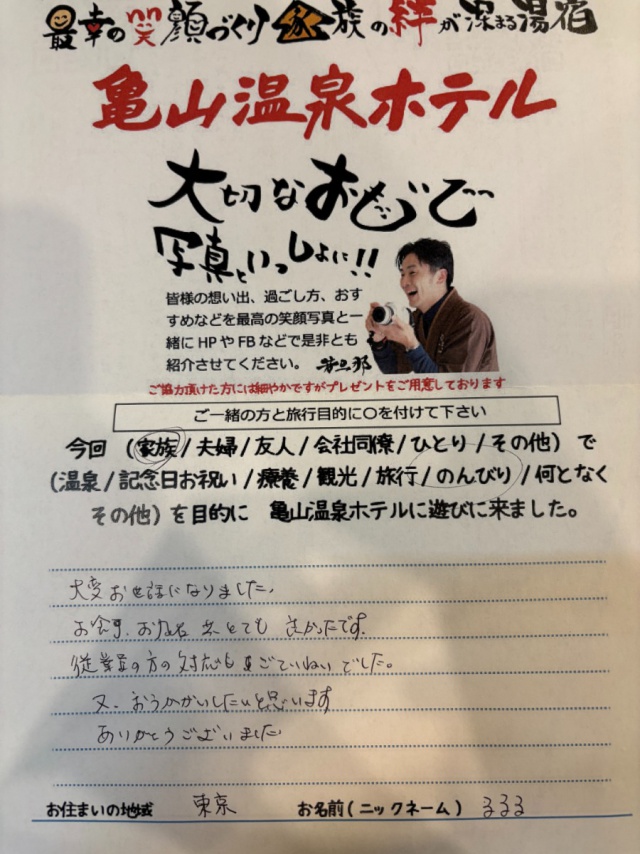 最幸の笑顔づくり家族の絆が深まる湯宿
亀山温泉ホテル
大切なおもいで
写真といっしょに!!
皆様の想い出、過ごし方、おす
すめなどを最高の笑顔写真と一
緒にHPやFBなどで是非とも
紹介させてください。 若旦那
ご協力頂けた方には細やかですがプレゼントをご用意しております
ご一緒の方と旅行目的に〇を付けて下さい
今回 (家族/夫婦/友人/会社同僚/ひとり/その他) で
(温泉/記念日お祝い/療養/観光/旅行/のんびり/何となく
その他) を目的に 亀山温泉ホテルに遊びに来ました。
大変お世話になりました。
お食事、お風呂 とても よかったです。
従業員の方の対応も ていねいでした。
又、おうかがいしたいと思います
ありがとうございました
お住まいの地域 東京 お名前(ニックネーム) るるる